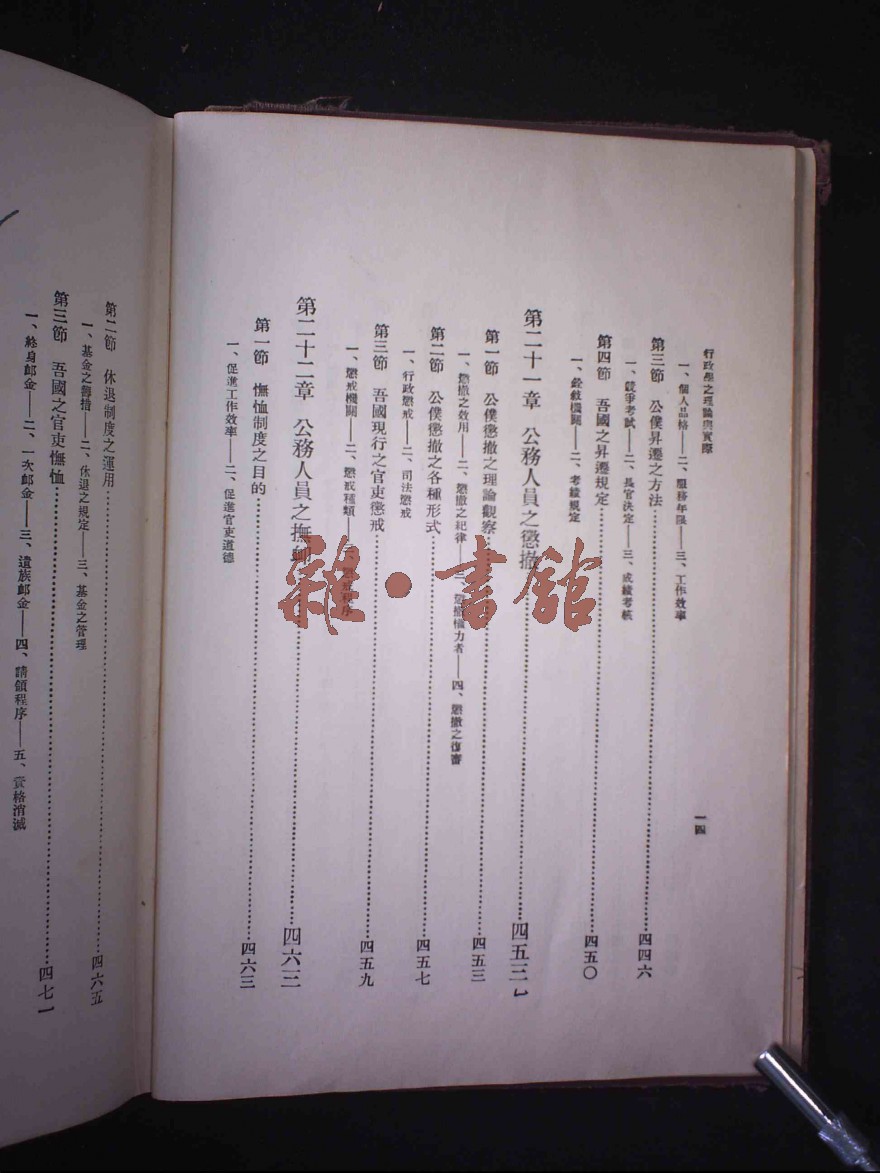 行政學之理論與實際
一、個人品格——二、服務年限——三、工作效率
第三節 公僕昇遷之方法……四四六
一、競爭考試——二、長官決定——三、成績考核
第四節 吾國之昇遷規定……四五〇
一、銓敘機關——二、考績規定
第二十一章 公務人員之懲撤……四五三
第一節 公僕懲撤之理論觀察……四五三
一、懲撤之效用——二、懲撤之紀律——三、懲撤權力者——四、懲撤之復審
第二節 公僕懲撤之各種形式……四五七
一、行政懲戒——二、司法懲戒
第三節 吾國現行之官吏懲戒……四五九
一、懲戒機關——二、懲戒種類——三、懲戒程序
第二十二章 公務人員之撫卹……四六三
第一節 憮恤制度之目的……四六三
一、促進工作效率——二、促進官吏道德
一四
第二節 休退制度之運用……四六五
一、基金之籌措——二、休退之規定——三、基金之管理
第三節 吾國之官吏憮恤……四七一
一、終身卹金——二、一次卹金——三、遺族卹金——四、請領程序——五、資格消滅
雜·書館